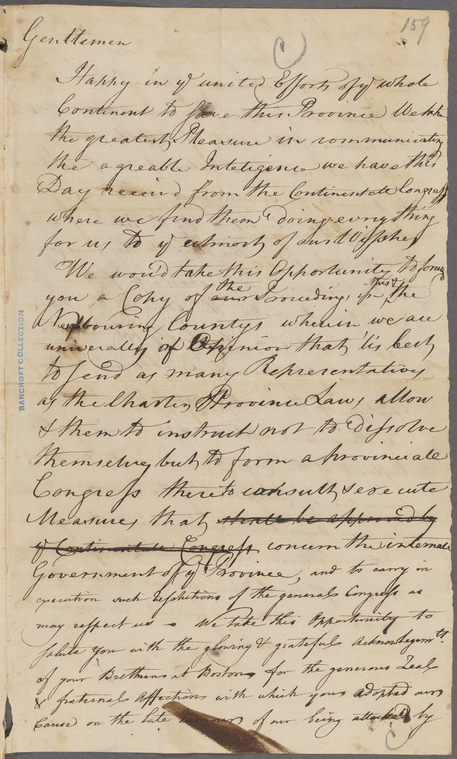 159
Gentlemen
Happy in ye united Efforts of ye whole
Continent to save this Province We take
the greatest Pleasure in communicating
the agreable Inteligence we have this
Day receivd from the Continentale Congress
where we find them doing every thing
for us to ye utmost of our Wishes
We would take this Opportunity to forwd
you a Copy of the our Proceedings this & the
Neighbouring Countys wherein we are
univerally of Opinion that tis best
to send as many Representatives
as the Charter & Province Laws allow
& them to instruct not to dissolve
themselves but to form a Provinciale
Congress there to consult & execute
Measures that shall be approved by
ye Continentale Congress concern the internale
Government of ye Province, and to carry in
execution such resolutions of the general Congress as
may respect us - We take this Opportunity to
salute you with the glowing & grateful Acknowlegemts
of your Brethrens at Boston for the generous Zeal
& fraternal Affections with which you adopted our
Cause on the late of our being attacked by
BANCROFT COLLECTION